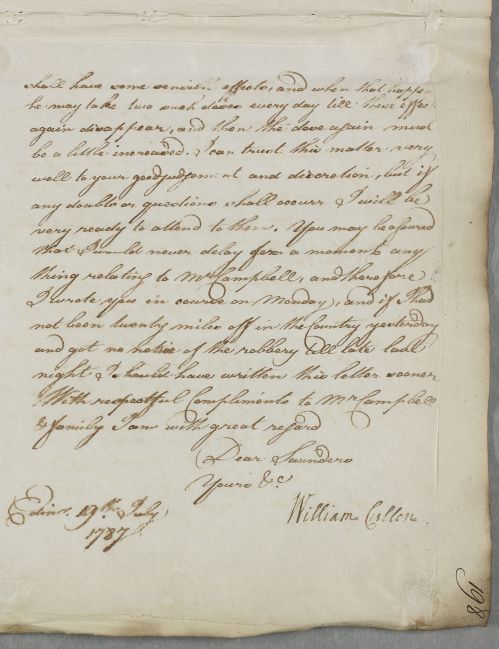 shall have some sensible effects, and when that happens
he may take two such doses every day till these effects
again disappear, and then the dose again must
be a little increased. I can trust this matter very
well to your good judgement and discretion, but if
any doubts or questions shall occurr I will be
very ready to attend to them. You may be assured
that I would never delay for a moment any
thing relating to Mr Campbell, and therefore
I wrote you in course on Monday, and if I had
not been twenty miles off in the Country yesterday
and got no notice of the robbery till late last
night I should have written this letter sooner
With respectful Compliments to Mr Campbell
& family I am with great regard
Dear Saunders
Yours &c
William Cullen
Edinr. 19th. July
1787
198